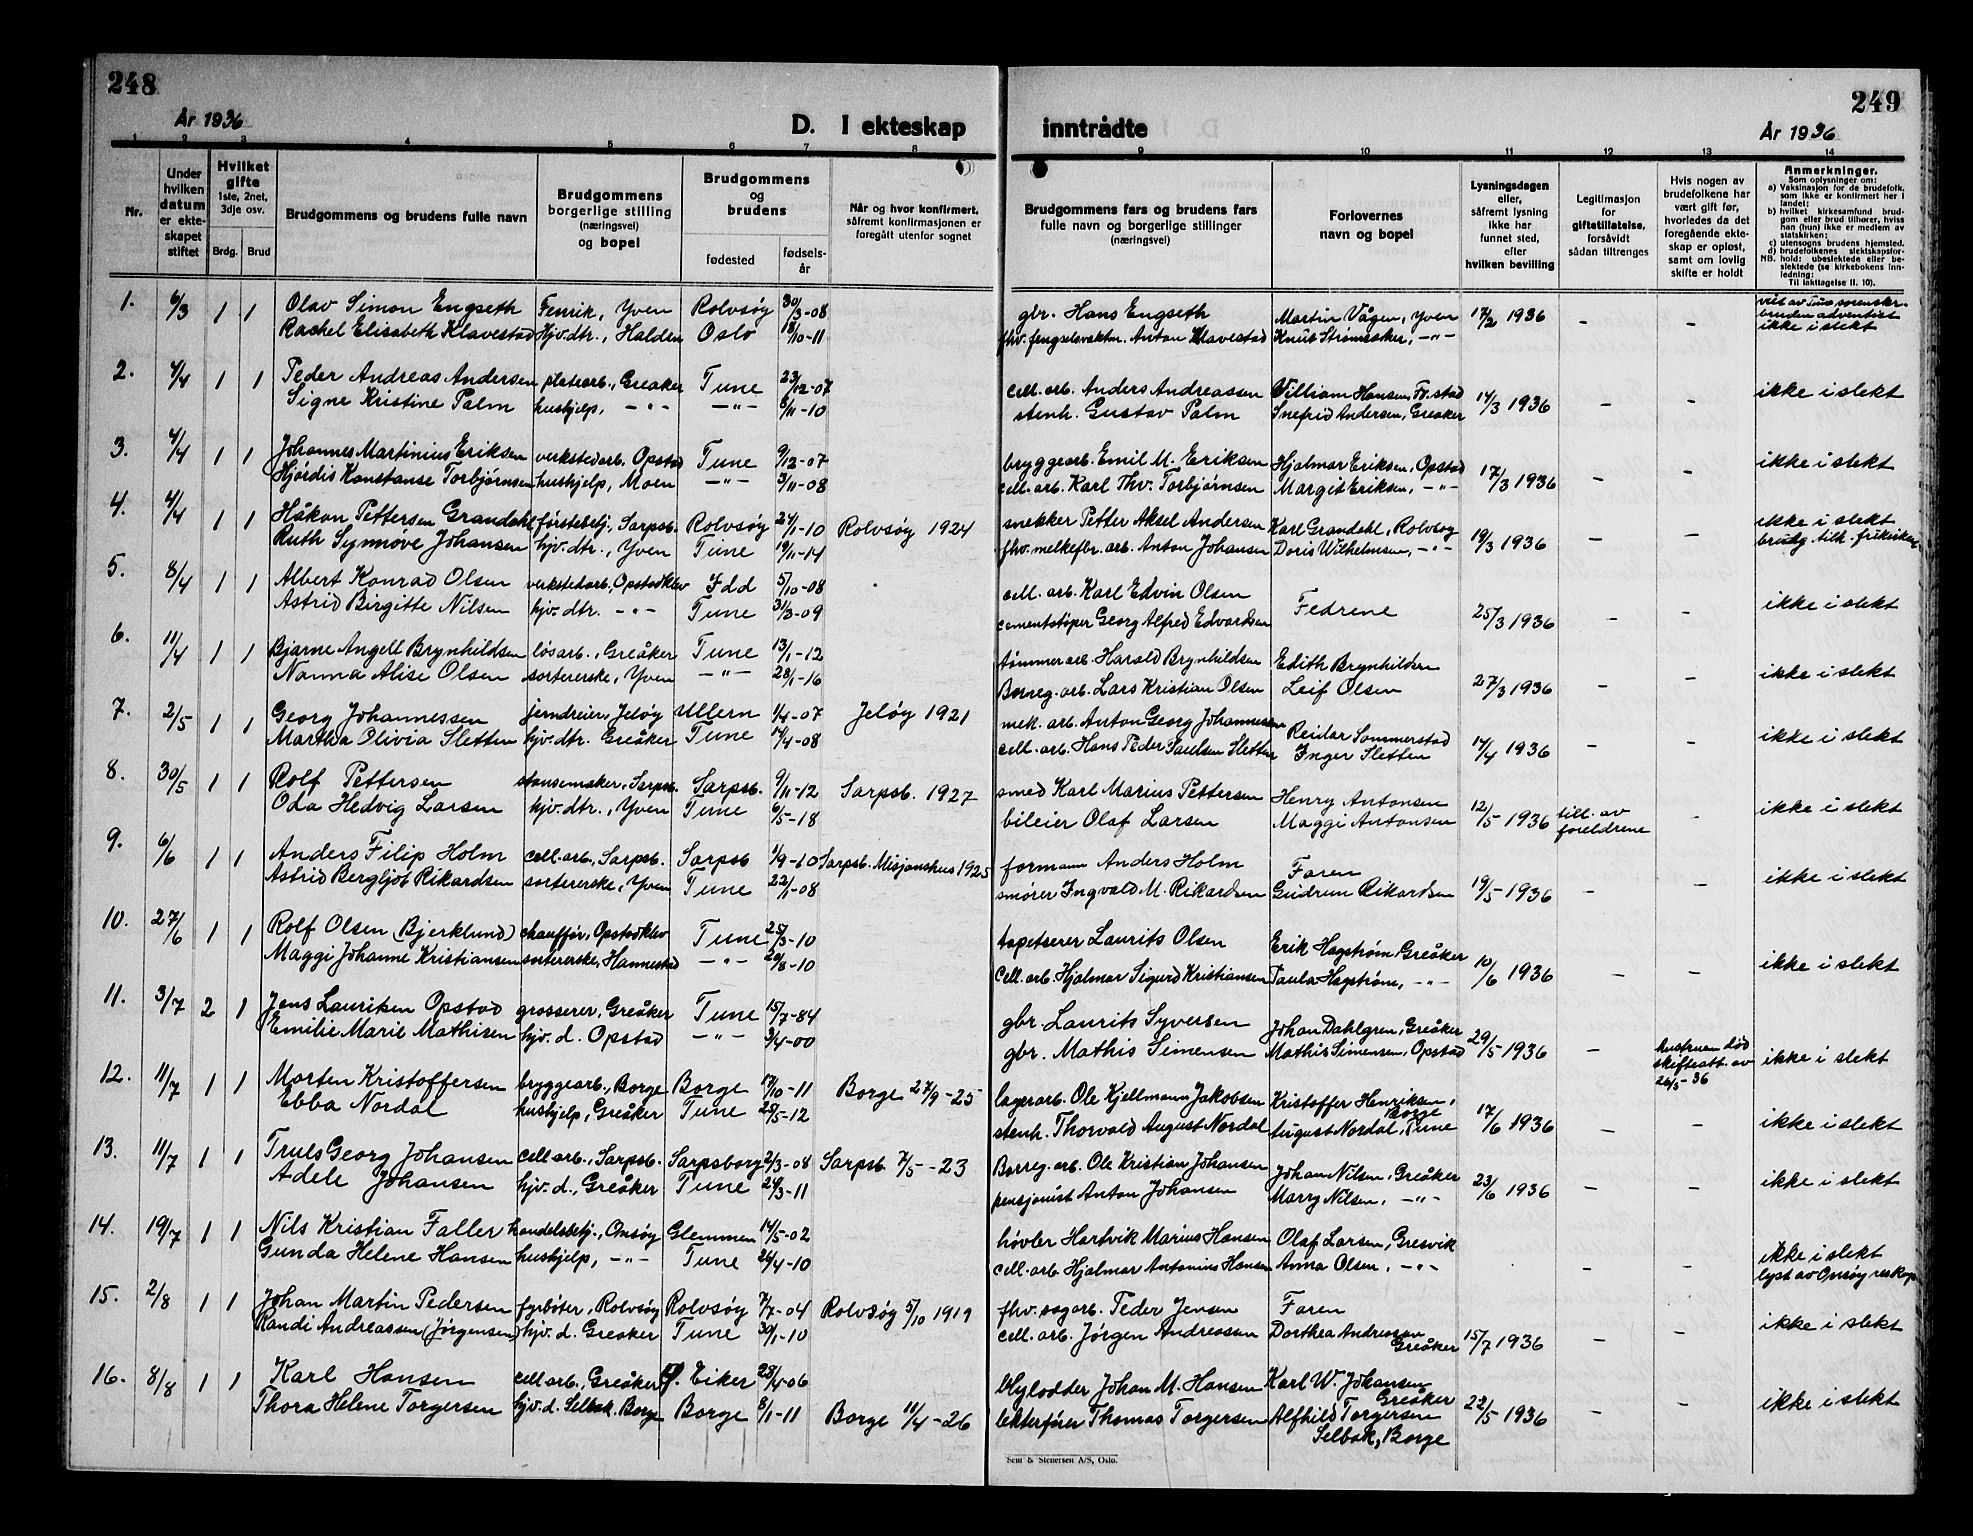 248
År 1936
D. I ekteskap
1 2 3 4 5 6 7 8
Nr.
Under hvilken datum er ekteskapet stiftet
Hvilket gifte
1ste, 2net, 3dje osv.
Brdg. Brud
Brudgommens og brudens fulle navn
Brudgommens borgerlige stilling (næringsvei) og bopel
Brudgommens og brudens
fødested
fødselsår
Når og hvor konfirmert, såfremt konfirmasjonen er foregått utenfor sognet
1. 6/3 1 1 Olav Simon Engseth Fenrik, Yven Rolvsøy 30/3-08
Rachel Elisabeth Klavestad Hjv.dtr., Halden Oslo 18/10-11
2. 4/4 1 1 Peder Andreas Andersen platearb., Greaker Tune 23/12-07
Signe Kristine Palm hushjelp, -"- -"- 8/11-10
3. 4/4 1 1 Johannes Martinius Eriksen verkstedarb. Opstad Tune 9/12-07
Hjørdis Konstanse Torbjørnsen hushjelp, Moen -"- 3/11-08
4. 4/4 1 1 Håkon Pettersen Grandahl førstebetj., Sarpsb. Rolvsøy 24/1-10 Rolvsøy 1924
Ruth Synnøve Johansen hjv.dtr., Yven Tune 19/11-14
5. 8/4 1 1 Albert Konrad Olsen verkstedarb., Opstadklev Idd 5/10-08
Astrid Birgitte Nilsen hjv.dtr. -"- Tune 31/3-09
6. 11/4 1 1 Bjarne Angell Brynhildsen løsarb., Greåker Tune 13/1-12
Nanna Alise Olsen sortererske, Yven -"- 28/1-16
7. 2/5 1 1 Georg Johannessen jerndreier, Jeløy Ullern 1/4-07 Jeløy 1921
Martha Olivia Sletten hjv.dtr. Greåker Tune 14/4-08
8. 30/5 1 1 Rolf Pettersen stansemaker, Sarpsb. Sarpsb. 9/11-12 Sarpsb. 1927
Oda Hedvig Larsen hjv.dtr., Yven Tune 6/5-18
9. 6/6 1 1 Anders Filip Holm cell.arb., Sarpsb. Sarpsb 1/9-10 Sarpsb. Misjonshus 1925
Astrid Bergljot Rikardsen sortererske, Yven Tune 22/1-08
10. 27/6 1 1 Rolf Olsen (Bjerklund) chauffør, Opstadklev Tune 25/3-10
Maggi Johanne Kristiansen sortererske, Hannestad -"- 20/8-10
11. 3/7 2 1 Jens Lauritzen Opstad grosserer, Greåker Tune 15/7-84
Emilie Marie Mathisen hjv.d. Opstad -"- 9/4-00
12. 11/7 1 1 Morten Kristoffersen bryggearb., Borge Borge 17/10-11 Borge 27/9-25
Ebba Nordal hushjelp, Greåker Tune 28/5-12
13. 11/7 1 1 Truls Georg Johansen cellarb., Sarpsb. Sarpsborg 2/3-08 Sarpsb. 7/5-23
Adele Johansen hjv.d., Greåker Tune 24/3-11
14. 19/7 1 1 Nils Kristian Faller handelsbetj., Onsøy Glemmen 14/5-02
Gunda Helene Hansen hushjelp, -"- Tune 24/4-10
15. 2/8 1 1 Johan Martin Pedersen fyrbøter, Rolvsøy Rolvsøy 7/7-04 Rolvsøy 5/10 1919
Randi Andreassen (Jørgensen) hjv.d. Greaker Tune 30/1-10
16. 8/8 1 1 Karl Hansen cellarb., Greåker Eiker 28/4-06
Thora Helene Torgersen hjv.d. Selbak, Borge Borge 8/1-11 Borge 11/4-26
249
inntrådte
År 1936
9 10 11 12 13 14
Brudgommens fars og brudens fars fulle navn og borgerlige stillinger (næringsvei)
Forlovernes navn og bopel
Lysningsdagen eller, såfremt lysning ikke har funnet sted, efter hvilken bevilling
Legitimasjon for giftetillatelse, forsåvidt sådan tiltrenges
Hvis nogen av brudefolkene har vært gift før, hvorledes da det foregående ekteskap er opløst, samt om lovlig skifte er holdt
Anmerkninger.
Som oplysninger om:
a) Vaksinasjon for de brudefolk, som ikke er konfirmert her i landet;
b) hvilket kirkesamfund brudgom eller brud tilhører, hviss han (hun) ikke er medlem av statskirken;
c) utensogns brudens hjemsted.
d) brudefolkenes slektskapsforhold: ubeslektede eller beslektede (se kirkebokens innledning:
NB.
Til iakttagelse II. 10).
gbr. Hans Engseth Martin Vågen, Yven 17/2 1936 - -
bruden adventist
fhv. fengselsvaktm. Anton Klavestad Knut Strømsæker, -"- ikke i slekt
cell.arb. Anders Andreassen William Hansen, Fr.stad 14/3 1936 - - ikke i slekt
stenh. Gustav Palm Snefrid Andersen, Greåker
bryggearb. Emil M. Eriksen Hjalmar Eriksen, Opstad 17/3 1936 - - ikke i slekt
cell.arb. Karl Thv. Torbjørnsen Margit Eriksen, -"-
snekker Petter Aksel Andersen Karl Grandahl, Rolvsøy 19/3 1936 - - ikke i slekt
fhv. melkefbr. arb. Anton Johansen Doris Wilhelmsen, -"- brudg. tilh. frikirken
cell. arb. Karl Edvin Olsen Fedrene 25/3 1936 - - ikke i slekt
cementstøper Georg Alfred Edvardsen
tømmerarb. Harald Brynhildsen Edith Brynhildsen 27/3 1936 - - ikke i slekt
Borreg. arb. Lars Kristian Olsen Leif Olsen
mek. arb. Anton Georg Johannessen Reidar Sommerstad 14/4 1936 - - ikke i slekt
cell. arb. Hans Peder Paulsen Sletten Inger Sletten
smed Karl Marius Pettersen Henry Antonsen 12/5 1936 till. av foreldrene - ikke i slekt
bileier Olaf Larsen Maggi Antonsen
formann Anders Holm Faren 19/5 1936 - - ikke i slekt
smører Ingvald M. Rikardsen Gudrun Rikardsen
tapetserer Laurits Olsen Erik Hagstrøm, Greåker 10/6 1936 - - ikke i slekt
Cell. arb. Hjalmar Sigurd Kristiansen Paula Hagstrøm, -"-
gbr. Laurits Syversen Johan Dahlgren, Greåker 29/5 1936 - hustruen død skifteatt. av 26/5-36 ikke i slekt
gbr. Mathis Simensen Mathis Simensen, Opstad
lagerarb. Ole Kjellmann Jakobsen Kristoffer Henriksen, Borge 17/6 1936 - - ikke i slekt
stenh. Thorvald August Nordal August Nordal, Tune
Borreg. arb. Ole Kristian Johansen Johan Nilsen, Greåker 23/6 1936 - - ikke i slekt
pensjonist Anton Johansen Marry Nilsen, -"-
høvler Hartvik Marius Hansen Olaf Larsen, Gresvik - - ikke i slekt
cell. arb. Hjalmar Antonius Hansen Anna Olsen, -"- lyst av Onsøy res.kap.
fhv. sagarb. Peder Jensen Faren 15/7 1936 - - ikke i slekt
cell. arb. Jørgen Andreassen Dorthea Andreassen Greåker
blylodder Johan M. Hansen Karl W. Johansen Greåker 22/5 1936 - - ikke i slekt
lekterfører Thomas Torgersen Alfhild Torgersen
Selbak, Borge
Sem & Stenersen A/S, Oslo.